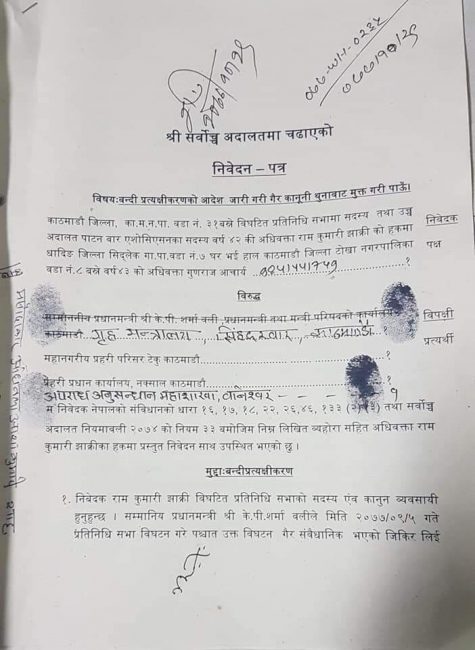 ०७७-WH-०२३५
०७७।१०।२९
२०७७।१०।२९
श्री सर्वोच्च अदालतमा चढाएको
निवेदन – पत्र
विषय:बन्दी प्रत्यक्षीकरणको आदेश जारी गरी गैर कानूनी थुनाबाट मुक्त गरी पाऊँ।
काठमाडौ जिल्ला, का.म.न.पा. वडा नं. ३१बस्ने विघटित प्रतिनिधि सभामा सदस्य तथा उच्च
अदालत पाटन बार एशोसिएसनका सदस्य वर्ष ४२ की अधिवक्ता राम कुमारी झाक्री को हकमा
धादिङ जिल्ला सिद्लेक गा.पा.वडा नं.७ घर भई हाल काठमाडौ जिल्ला टोखा नगरपालिका
वडा नं.८ बस्ने वर्ष४३ को अधिवक्ता गुणराज आचार्य ..९८५१५५१७५९..................१
निवेदक
पक्ष
विरुद्ध
सम्माननीय प्रधानमन्त्री श्री के.पी. शर्मा वली ,प्रधानमन्त्री तथा मन्त्री परिषदको कार्यालय
काठमाडौ गृह मन्त्रालय, सिंहदरवार, काठमाडौं १
विपक्षी
प्रत्यर्थी
महानगरीय प्रहरी परिसर टेकु काठमाडौ..................................१
प्रहरी प्रधान कार्यालय, नक्साल काठमाडौ..............................१
अपराध अनुसन्धान महाशाखा, वानेश्वर - - - - १
म निवेदक नेपालको संविधानको धारा १६, १७, १८, २२, २६,४६, १३३ (२)(३) तथा सर्वोच्च
अदालत नियमावली २०७४ को नियम ३३ बमोजिम निम्न लिखित व्यहोरा सहित अधिवक्ता राम
कुमारी झाक्रीका हकमा प्रस्तुत निवेदन साथ उपस्थित भएको छु ।
मुद्दा:बन्दीप्रत्यक्षीकरण
१. निवेदक राम कुमारी झाक्री विघटित प्रतिनिधि सभाको सदस्य एंव कानुन व्यवसायी
हुनुहुन्छ । सम्मानिय प्रधानमन्त्री श्री के.पी.शर्मा वलीले मिति २०७७/०९/५ गते
प्रतिनिधि सभा विघटन गरे पश्चात उक्त विघटन गैर संवैधानिक भएको जिकिर लिई